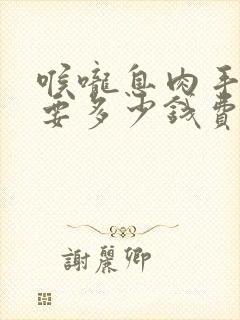 喉嚨息肉手
要多少錢費
謝麗卿